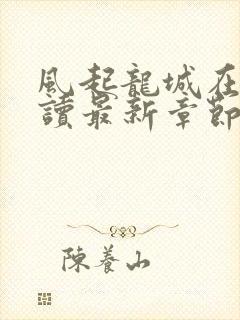 風起龍城在
讀最新章節
陳養山